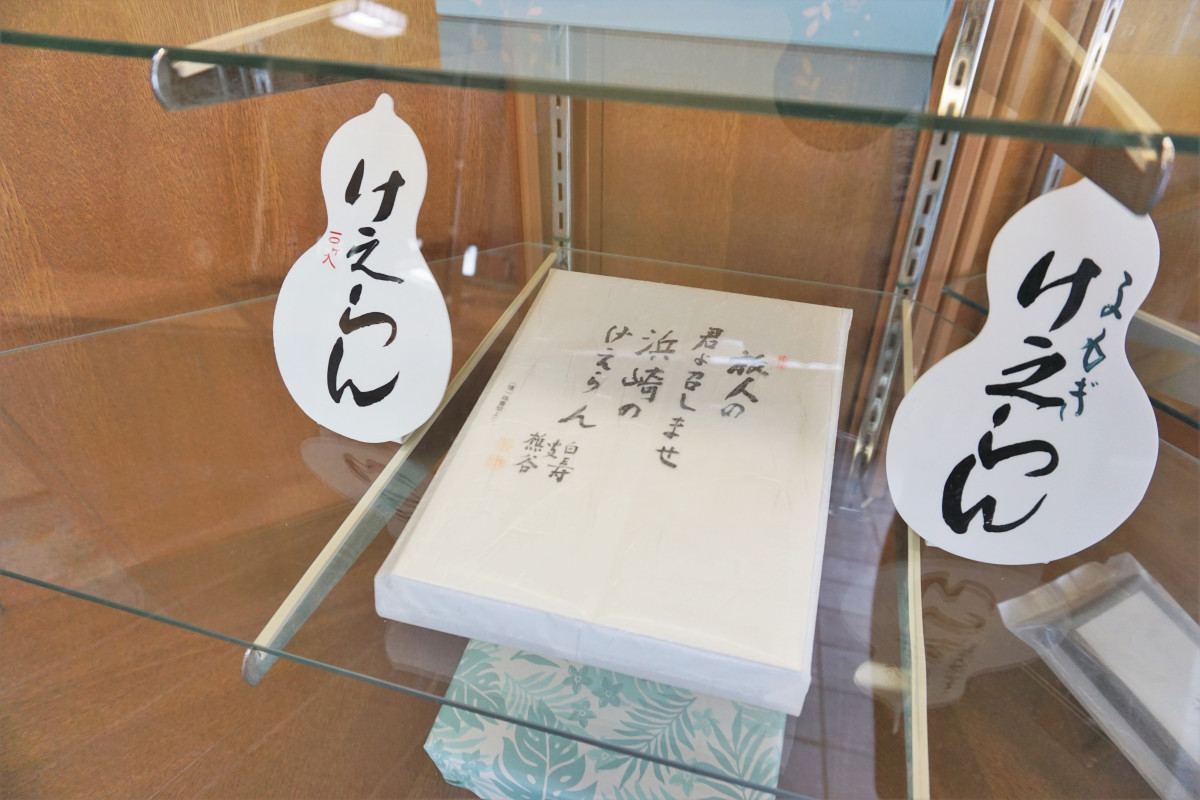 けえらん
一〇ケ入
旅人の
君よ召しませ
浜崎の
けえらん
白寿
熊谷
よもぎ
けえらん